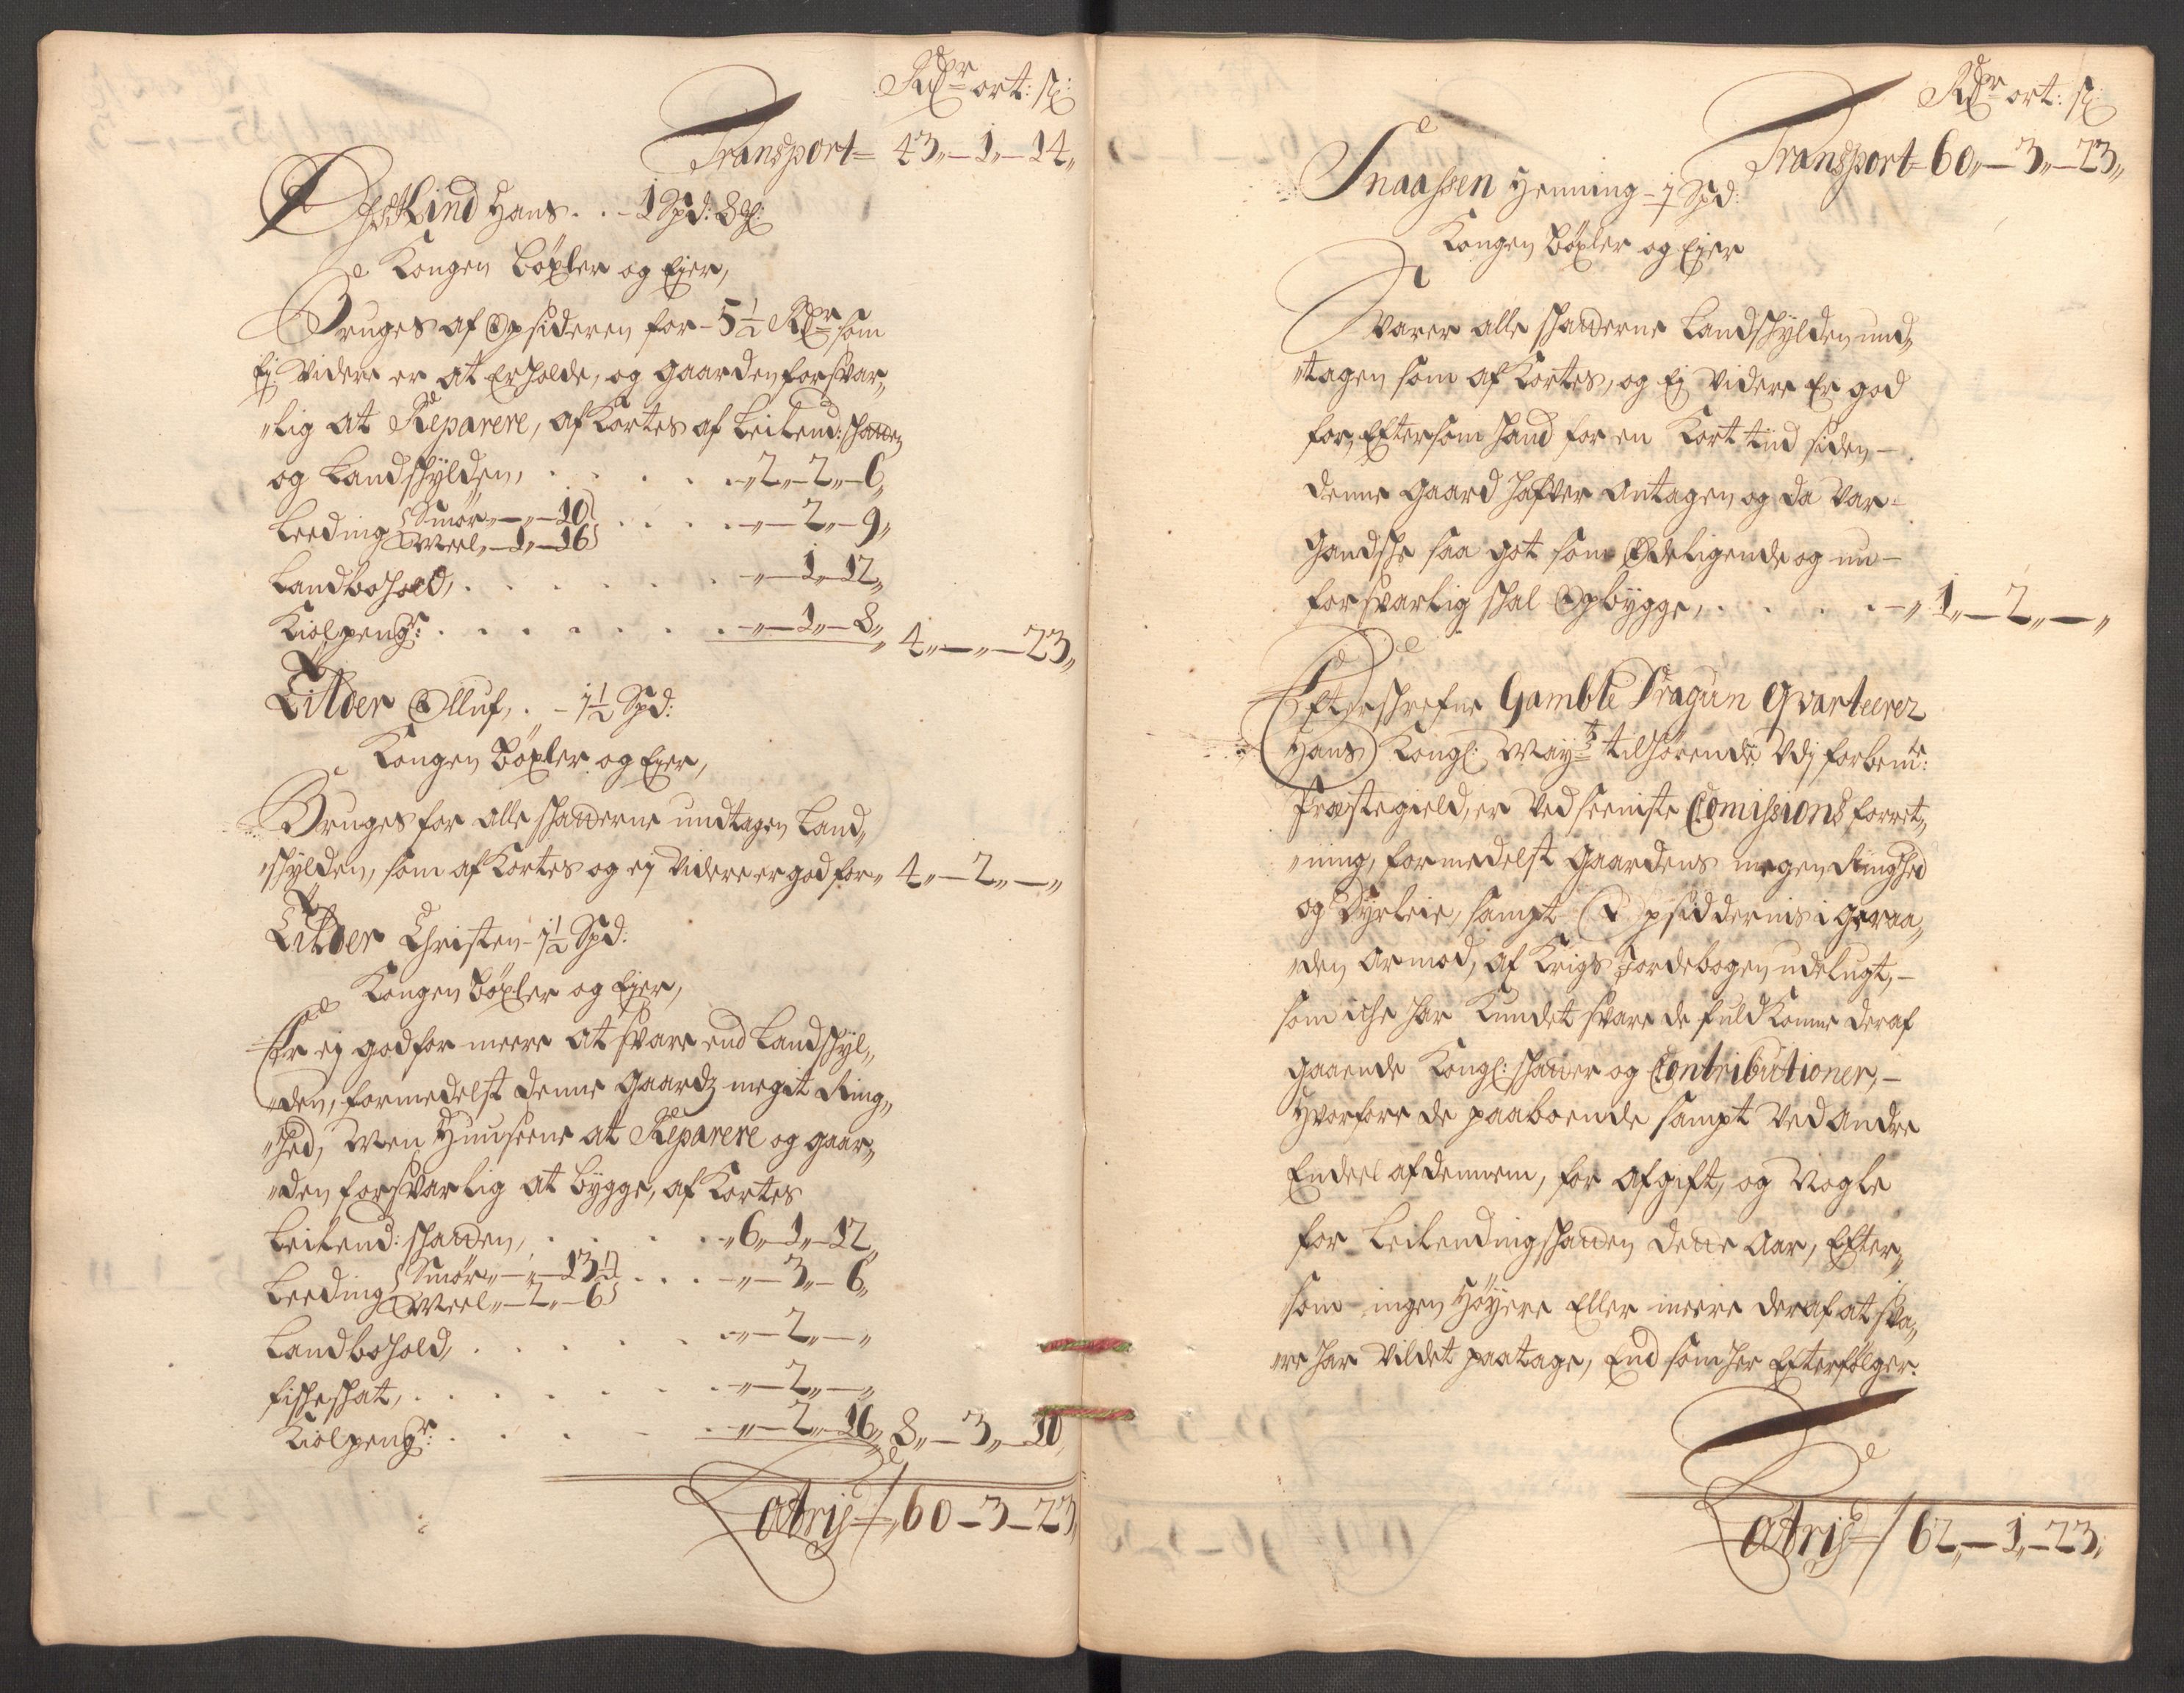 Rdr ort: sz:
Transport= 43„—1„—14„
Østkind Hans . . — 1 Spd: 8 ¾:
Kongen böxler og Ejer,
Bruges af Opsideren for — 5½ Rdr som
Ej videre er at Erholde, og gaarden forsvar„
„lig at Reparere, af Kortes af Leilend: skatten
og Landskylden, . . . . . „2„—2„—6„
Leeding {Smör „—„—10} . . . . „—2„—9„
{Meel „—1„—16}
Landbohold, . . . . . . „—1„—12„
Kiölpengr: . . . . . . „—1„—8„ 4„—„—23„
Eilder Olluf, . — 1½ Spd:
Kongen Böxler og Ejer,
Bruges for alle skatterne undtagen Land„
„skylden, som af Kortes og ej videre er god for„ 4„—2„—„
Eilder Christen — 1½ Spd:
Kongen Böxler og Ejer,
Er ej god for meere at svare end Landskyl„
„den, formedelst denne gaardz megit Ring„
„hed, Men Huuseene at Reparere og gaar„
„den forsvarlig at bygge, af Kortes
Leilend: skatten, . . . . . „6„—1„—12„
Leeding {Smör „—„—13½} . . . „—3„—6„
{Meel „—2„—6}
Landbohold, . . . . . „—2„—„
Fiskeskat, . . . . . . „—2„—„
Kiölpengr: . . . . . „—2„—16„ 8„—3„—10„
Latris=/ „60—3—23„
Rdr ort: sz:
Transport= 60„—3„—23„
Snaassen Henning — 1 Spd:
Kongen Böxler og Ejer
Svarer alle skatterne Landskylden und„
„tagen som af Kortes, og Ej videre Er god
for, Eftersom hand for en Kort tiid siden —
denne gaard hafver Antagen og da var —
gandske saa got som Ödeligende og nu —
forsvarlig skal Opbygge, . . . . . „1„—2„—„
Efterskrefne Gamble Dragun Qvarteerer
Hans Kongl: Mayts tilhörende Udj forbemte:
Præstegield, er ved seeniste Comissions forret„
„ning, formedelst gaardens megen Ringhed
og Dyrleie, sampt Opsiddernis i geraa„
„den Armod, af Krigs Jordebogen udelugt, —
som iche har Kundet svare de fuldkomne deraf
gaaende Kongl: skatter og Contributioner, —
Hvorfore de paaboende sampt ved andre
Endeel af dennem, for afgift, og Nogle
for Leilendingskatten dette Aar, Efter„
„som ingen Höyere Eller meere deraf at sva„
„re har vildet paatage, End som her Efterfölger.
Latris=/ 62„—1„—23„